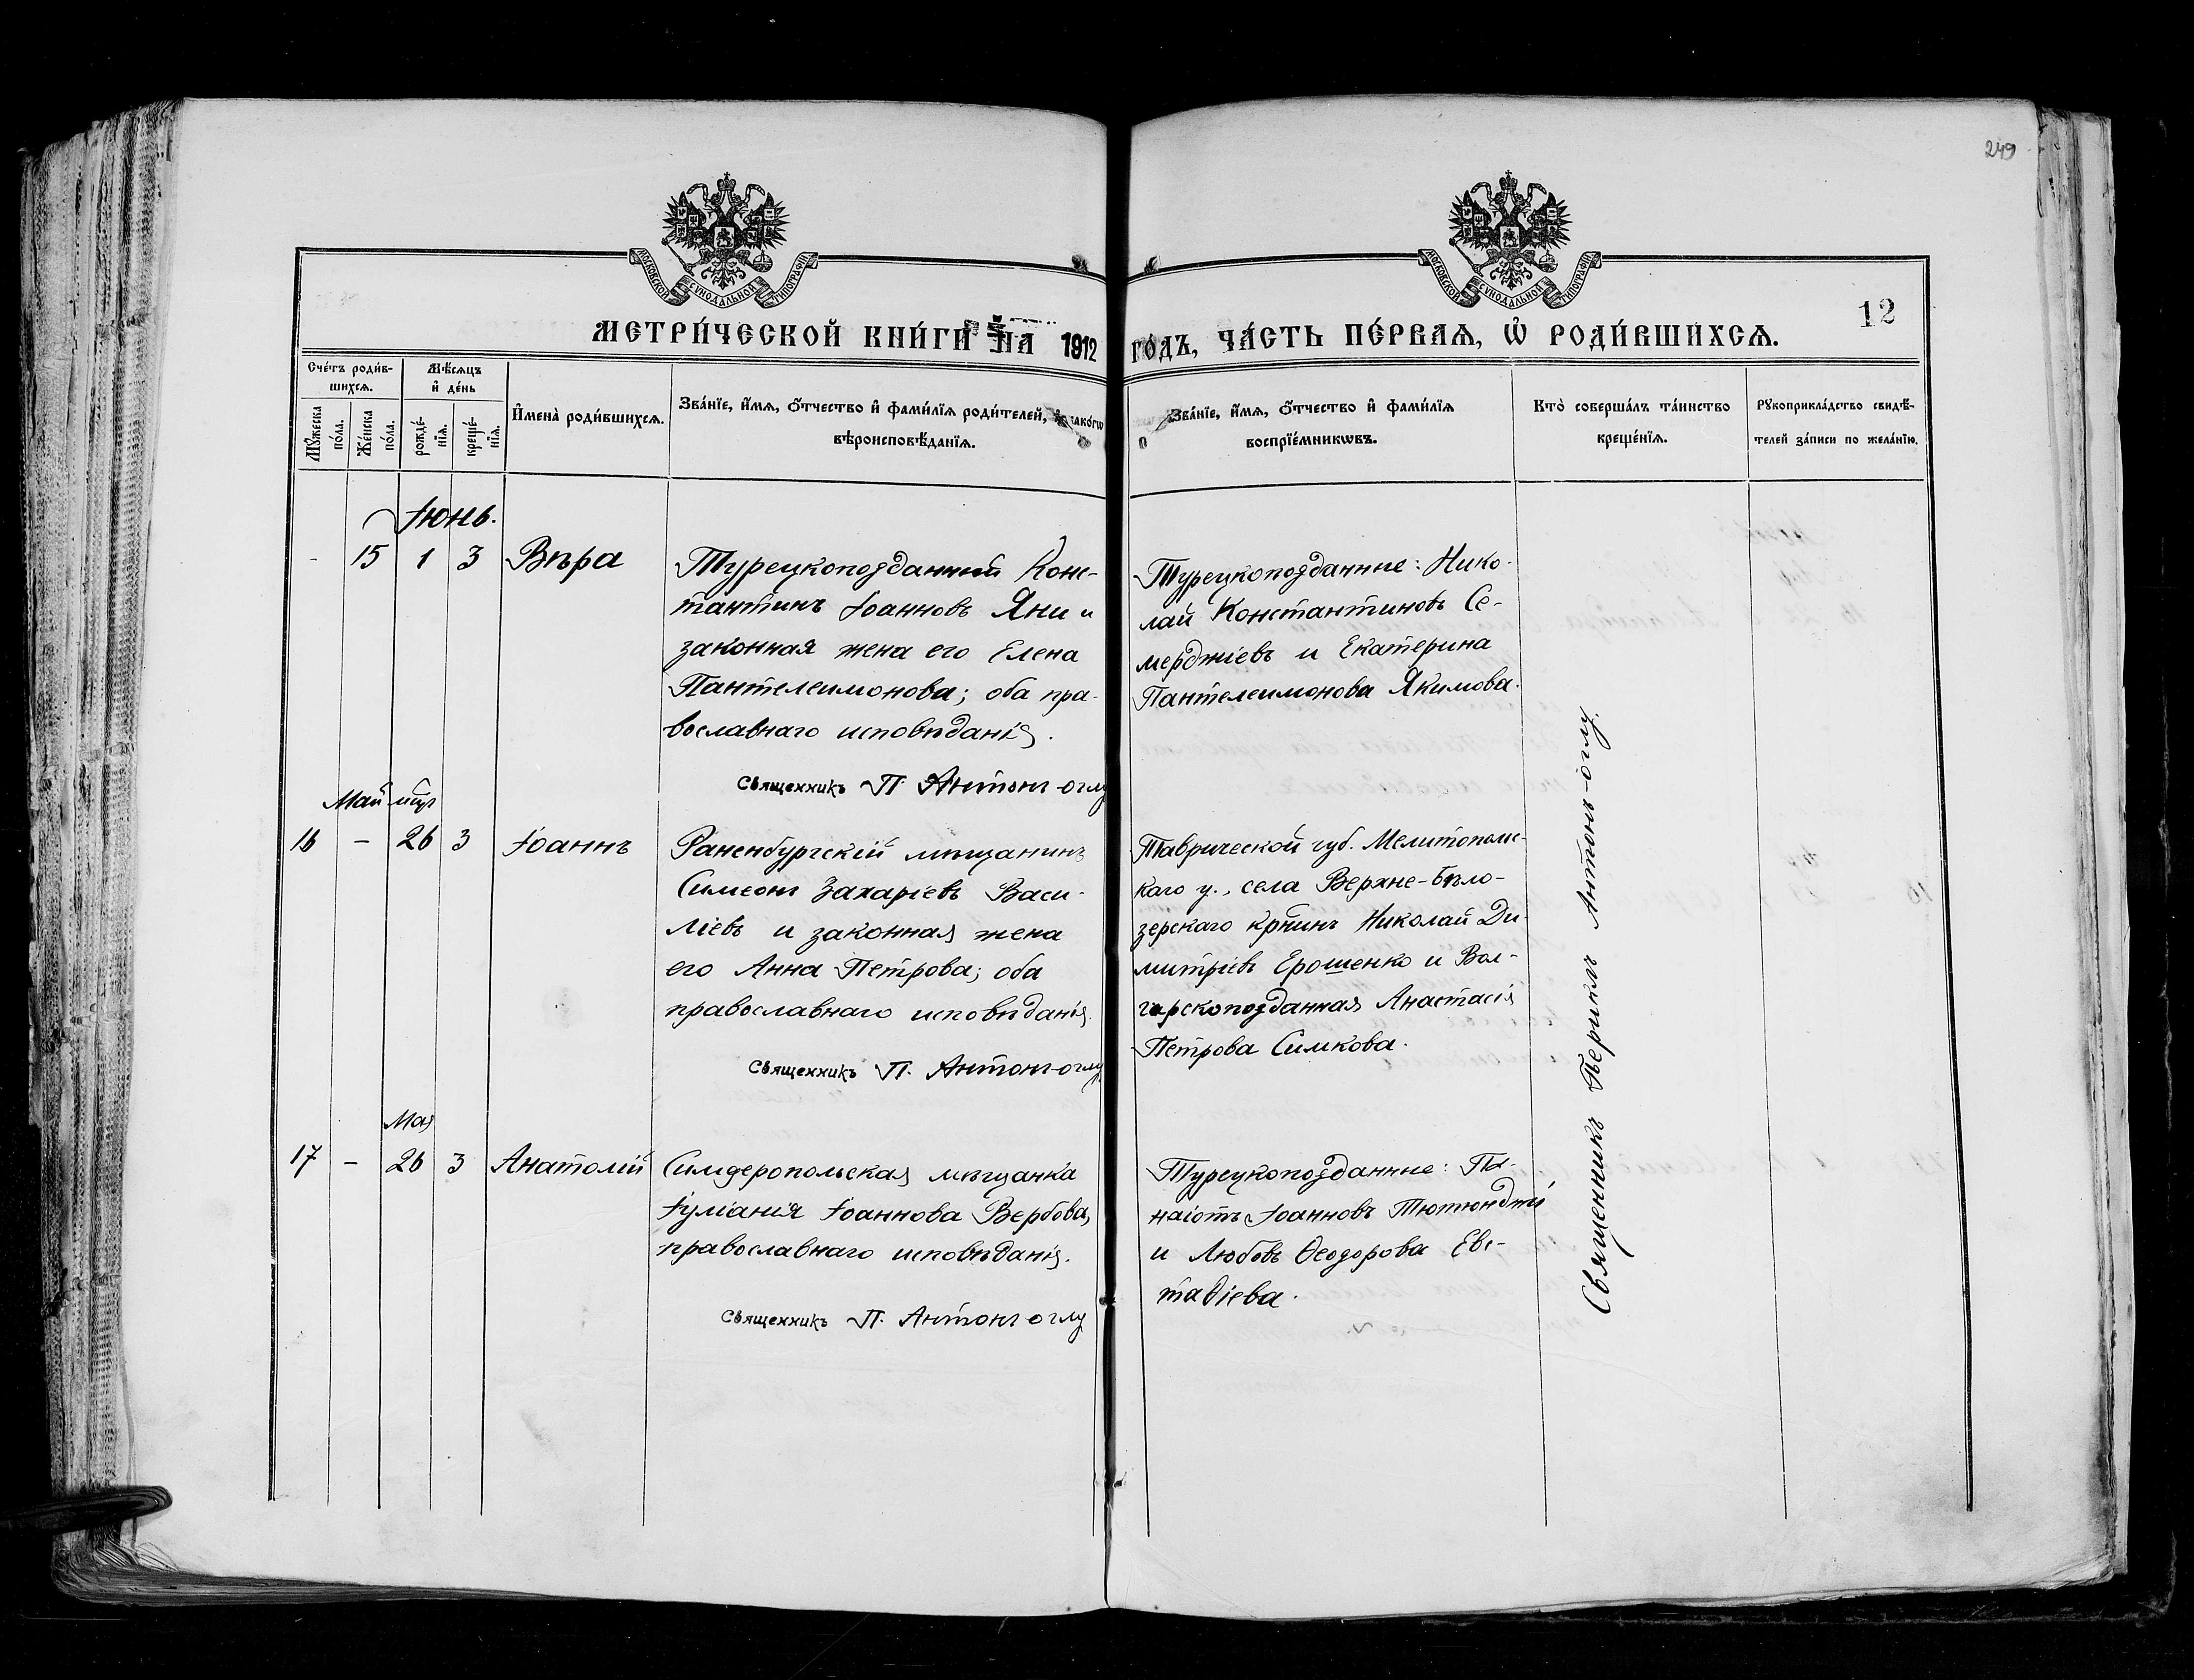 249
МОСКОВСКОЙ СѴНОДАЛЬНОЙ ТИПОГРАФІИ
МОСКОВСКОЙ СѴНОДАЛЬНОЙ ТИПОГРАФІИ
12
МЕТРИ́ЧЕСКОЙ КНИ́ГИ НА 1912 ГО́ДЪ, ЧА́СТЬ ПЕ́РВАѦ, Ѡ҆ РОДИ́ВШИХСѦ.
Сче́тъ роди́в-
шихсѧ.
Мꙋ́жеска
по́ла.
Же́нска
по́ла.
Мѣ́сѧцъ
и҆ де́нь
рожде́-
нїѧ.
креще́-
нїѧ.
И҆мена̀ роди́вшихсѧ.
Зва́нїе, и҆́мѧ, ѻ҆́тчество и҆ фами́лїѧ роди́телей, и҆ како́гѡ
вѣроисповѣ́данїѧ.
Зва́нїе, и҆́мѧ, ѻ҆́тчество и҆ фами́лїѧ
воспрїе́мникѡвъ.
Кто̀ соверша́лъ та́инство
креще́нїѧ.
Рꙋкоприкла́дство свидѣ́-
телей за́писи по жела́нїю.
Іюнь.
- 15 1 3 Вѣра
Турецкоподданный Конс-
тантинъ Іоанновъ Яни и
законная жена его Елена
Пантелеимонова; оба пра-
вославнаго исповѣданія.
Священникъ П. Антонъ-оглу
Турецкоподданные: Нико-
лай Константиновъ Се-
мерджіевъ и Екатерина
Пантелеимонова Якимова.
Май
16 – 26 3 Іоаннъ
Раненбургскій мѣщанинъ
Симеонъ Захаріевъ Васи-
ліевъ и законная жена
его Анна Петрова; оба
православнаго исповѣданія.
Священникъ П. Антонъ-оглу
Таврической губ. Мелитопольс-
каго у., села Верхне-Бѣло-
зерскаго крнинъ Николай Ди-
митріевъ Ерошенко и Бол-
гарскоподданная Анастасія
Петрова Симкова.
Мая
17 – 26 3 Анатолій
Симферопольская мѣщанка
Іуліанія Іоаннова Вербова,
православнаго исповѣданія.
Священникъ П. Антонъ-оглу
Турецкоподданные: Па-
наіотъ Іоанновъ Тютюнджи
и Любовь Ѳеодорова Евс-
тафіева.
Священникъ Периклъ Антонъ-оглу.